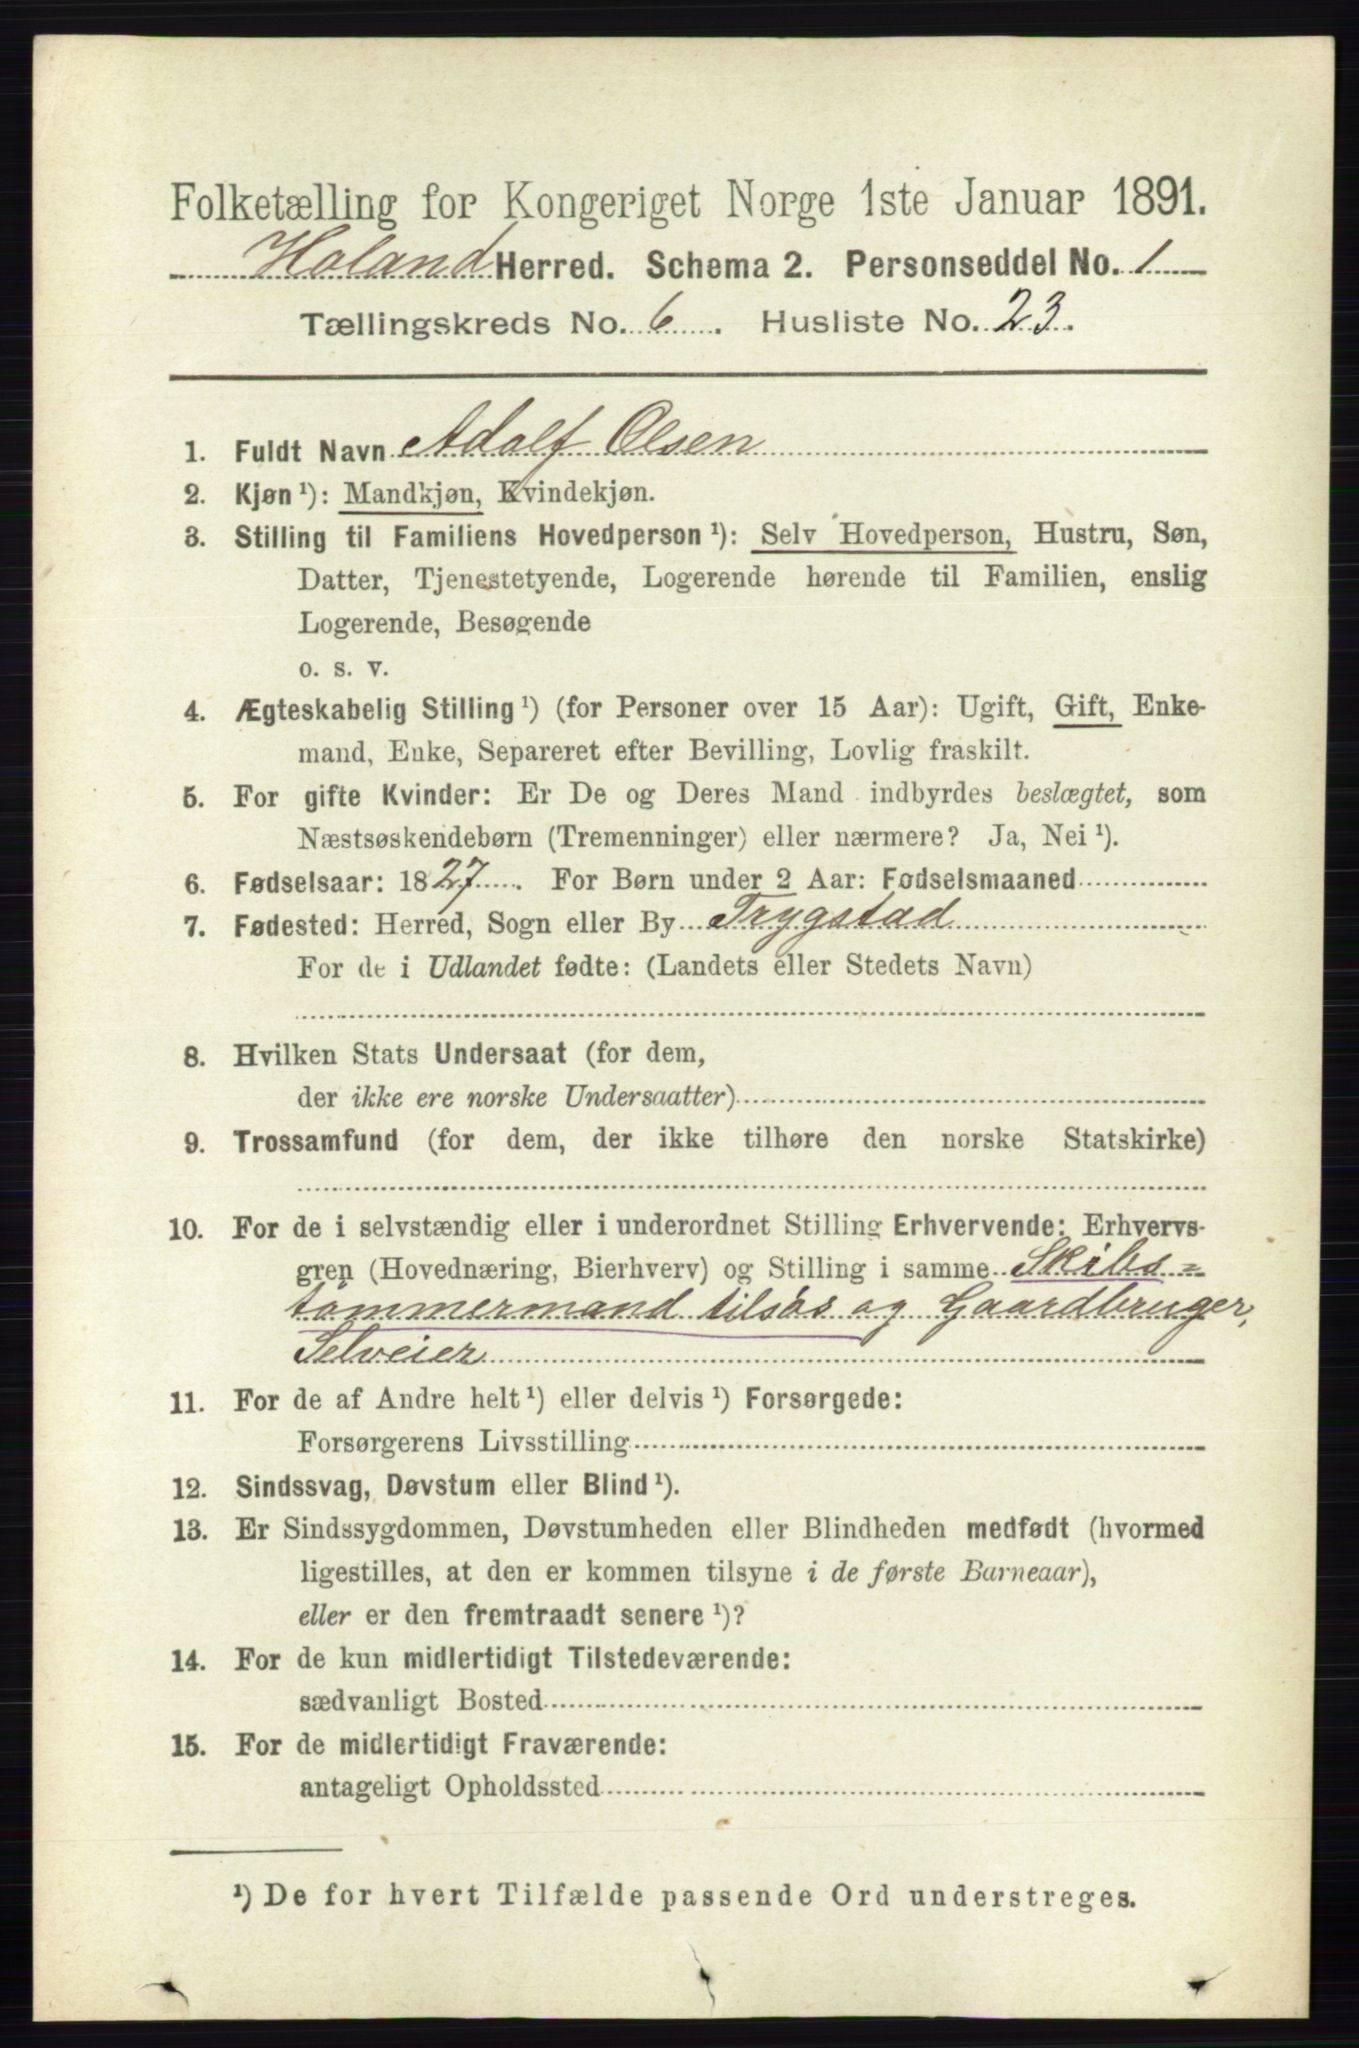 Folketælling for Kongeriget Norge 1ste Januar 1891.
Holand Herred. Schema 2. Personseddel No. 1
Tællingskreds No. 6. Husliste No. 23.
1. Fuldt Navn Adolf Olsen
2. Kjøn ¹): Mandkjøn, Kvindekjøn.
3. Stilling til Familiens Hovedperson ¹): Selv Hovedperson, Hustru, Søn,
Datter, Tjenestetyende, Logerende hørende til Familien, enslig
Logerende, Besøgende
o. s. v.
4. Ægteskabelig Stilling ¹) (for Personer over 15 Aar): Ugift, Gift, Enke-
mand, Enke, Separeret efter Bevilling, Lovlig fraskilt.
5. For gifte Kvinder: Er De og Deres Mand indbyrdes beslægtet, som
Næstsøskendebørn (Tremenninger) eller nærmere? Ja, Nei ¹).
6. Fødselsaar: 1827. For Børn under 2 Aar: Fødselsmaaned
7. Fødested: Herred, Sogn eller By Trygstad
For de i Udlandet fødte: (Landets eller Stedets Navn)
8. Hvilken Stats Undersaat (for dem,
der ikke ere norske Undersaatter)
9. Trossamfund (for dem, der ikke tilhøre den norske Statskirke)
10. For de i selvstændig eller i underordnet Stilling Erhvervende: Erhvervs-
gren (Hovednæring, Bierhverv) og Stilling i samme Skibs=
tömmermand tilsøs og Gaardbruger,
Selveier
11. For de af Andre helt ¹) eller delvis ¹) Forsørgede:
Forsørgerens Livsstilling
12. Sindssvag, Døvstum eller Blind ¹).
13. Er Sindssygdommen, Døvstumheden eller Blindheden medfødt (hvormed
ligestilles, at den er kommen tilsyne i de første Barneaar),
eller er den fremtraadt senere ¹)?
14. For de kun midlertidigt Tilstedeværende:
sædvanligt Bosted
15. For de midlertidigt Fraværende:
antageligt Opholdssted
¹) De for hvert Tilfælde passende Ord understreges.